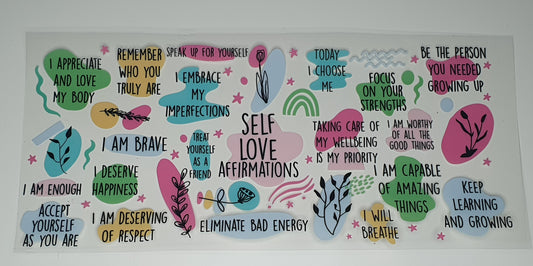 I APPRECIATE
AND LOVE
MY BODY
REMEMBER
WHO YOU
TRULY ARE
SPEAK UP FOR YOURSELF
I EMBRACE
MY
IMPERFECTIONS
TODAY
I CHOOSE
ME
FOCUS
ON YOUR
STRENGTHS
BE THE PERSON
YOU NEEDED
GROWING UP
I AM BRAVE
TREAT
YOURSELF
AS A
FRIEND
SELF
LOVE
AFFIRMATIONS
TAKING CARE OF
MY WELLBEING
IS MY PRIORITY
I AM WORTHY
OF ALL THE
GOOD THINGS
I DESERVE
HAPPINESS
I AM ENOUGH
ACCEPT
YOURSELF
AS YOU ARE
I AM DESERVING
OF RESPECT
ELIMINATE BAD ENERGY
I WILL
BREATHE
I AM CAPABLE
OF AMAZING
THINGS
KEEP
LEARNING
AND GROWING